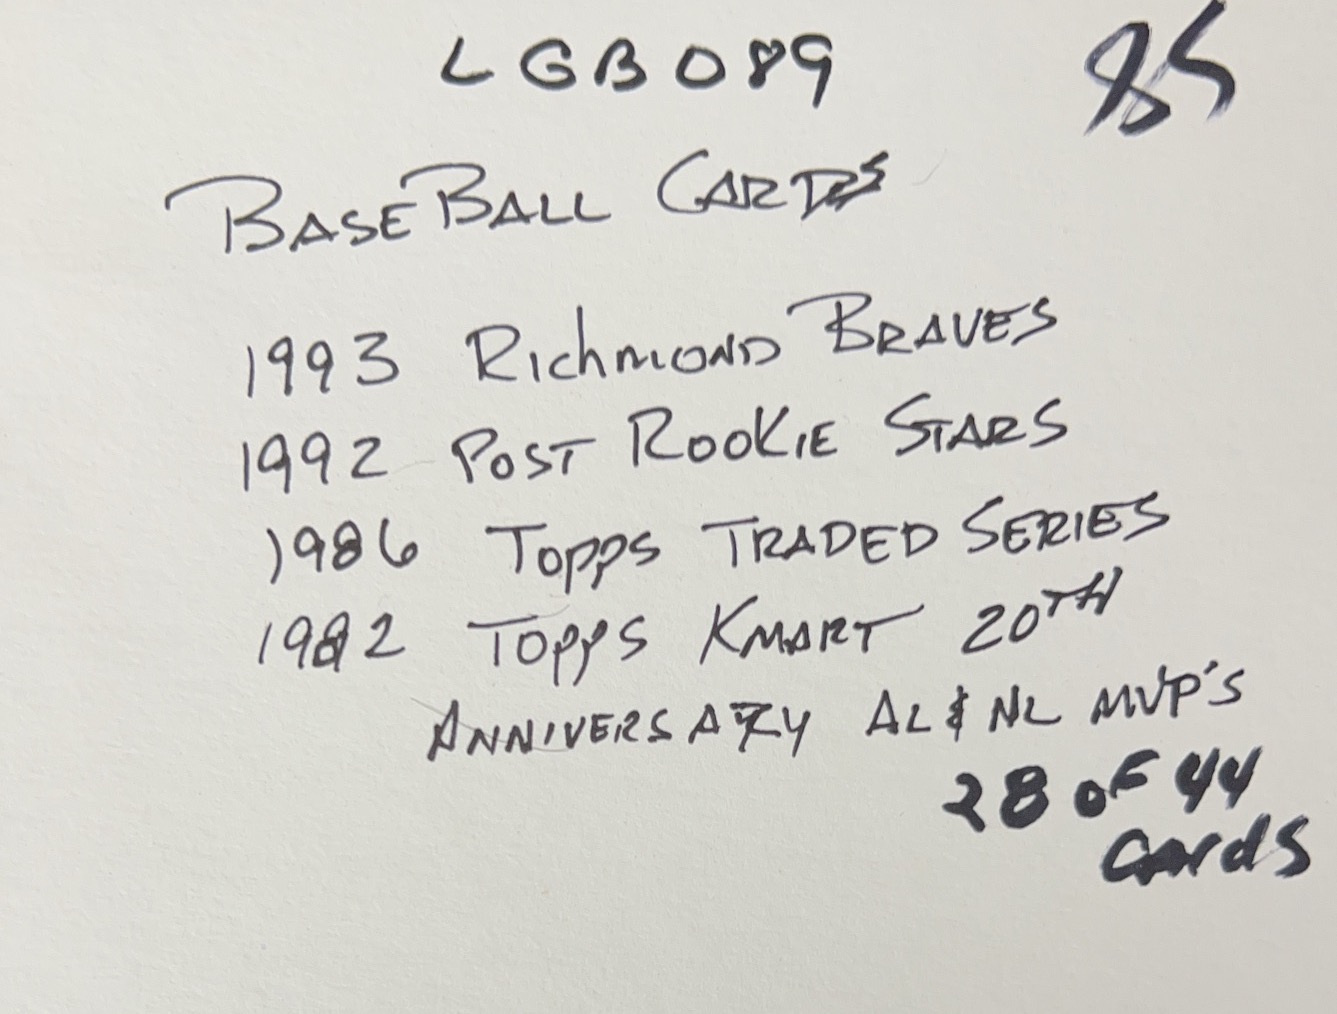 LGB089
85
BASEBALL CARDS
1993 Richmond BRAVES
1992 POST ROOKIE STARS
1986 Topps TRADED SERIES
1982 Topps KMART 20TH
ANNIVERSARY AL & NL MVP'S
28 of 44
cards